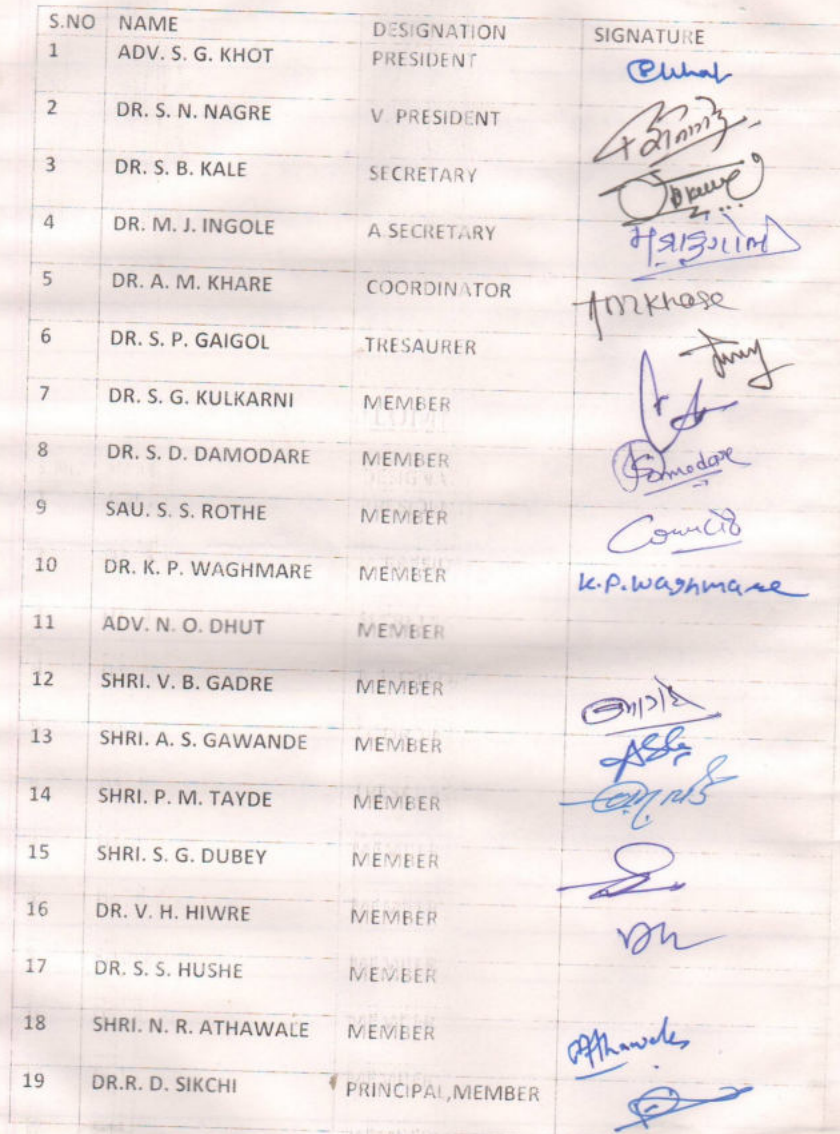 S.NO NAME DESIGNATION SIGNATURE
1 ADV. S. G. KHOT PRESIDENT
2 DR. S. N. NAGRE V. PRESIDENT
3 DR. S. B. KALE SECRETARY
4 DR. M. J. INGOLE A SECRETARY
5 DR. A. M. KHARE COORDINATOR AMKhare
6 DR. S. P. GAIGOL TRESAURER
7 DR. S. G. KULKARNI MEMBER
8 DR. S. D. DAMODARE MEMBER
9 SAU. S. S. ROTHE MEMBER
10 DR. K. P. WAGHMARE MEMBER K.P.Waghmare
11 ADV. N. O. DHUT MEMBER
12 SHRI. V. B. GADRE MEMBER
13 SHRI. A. S. GAWANDE MEMBER
14 SHRI. P. M. TAYDE MEMBER
15 SHRI. S. G. DUBEY MEMBER
16 DR. V. H. HIWRE MEMBER
17 DR. S. S. HUSHE MEMBER
18 SHRI. N. R. ATHAWALE MEMBER
19 DR.R. D. SIKCHI PRINCIPAL,MEMBER